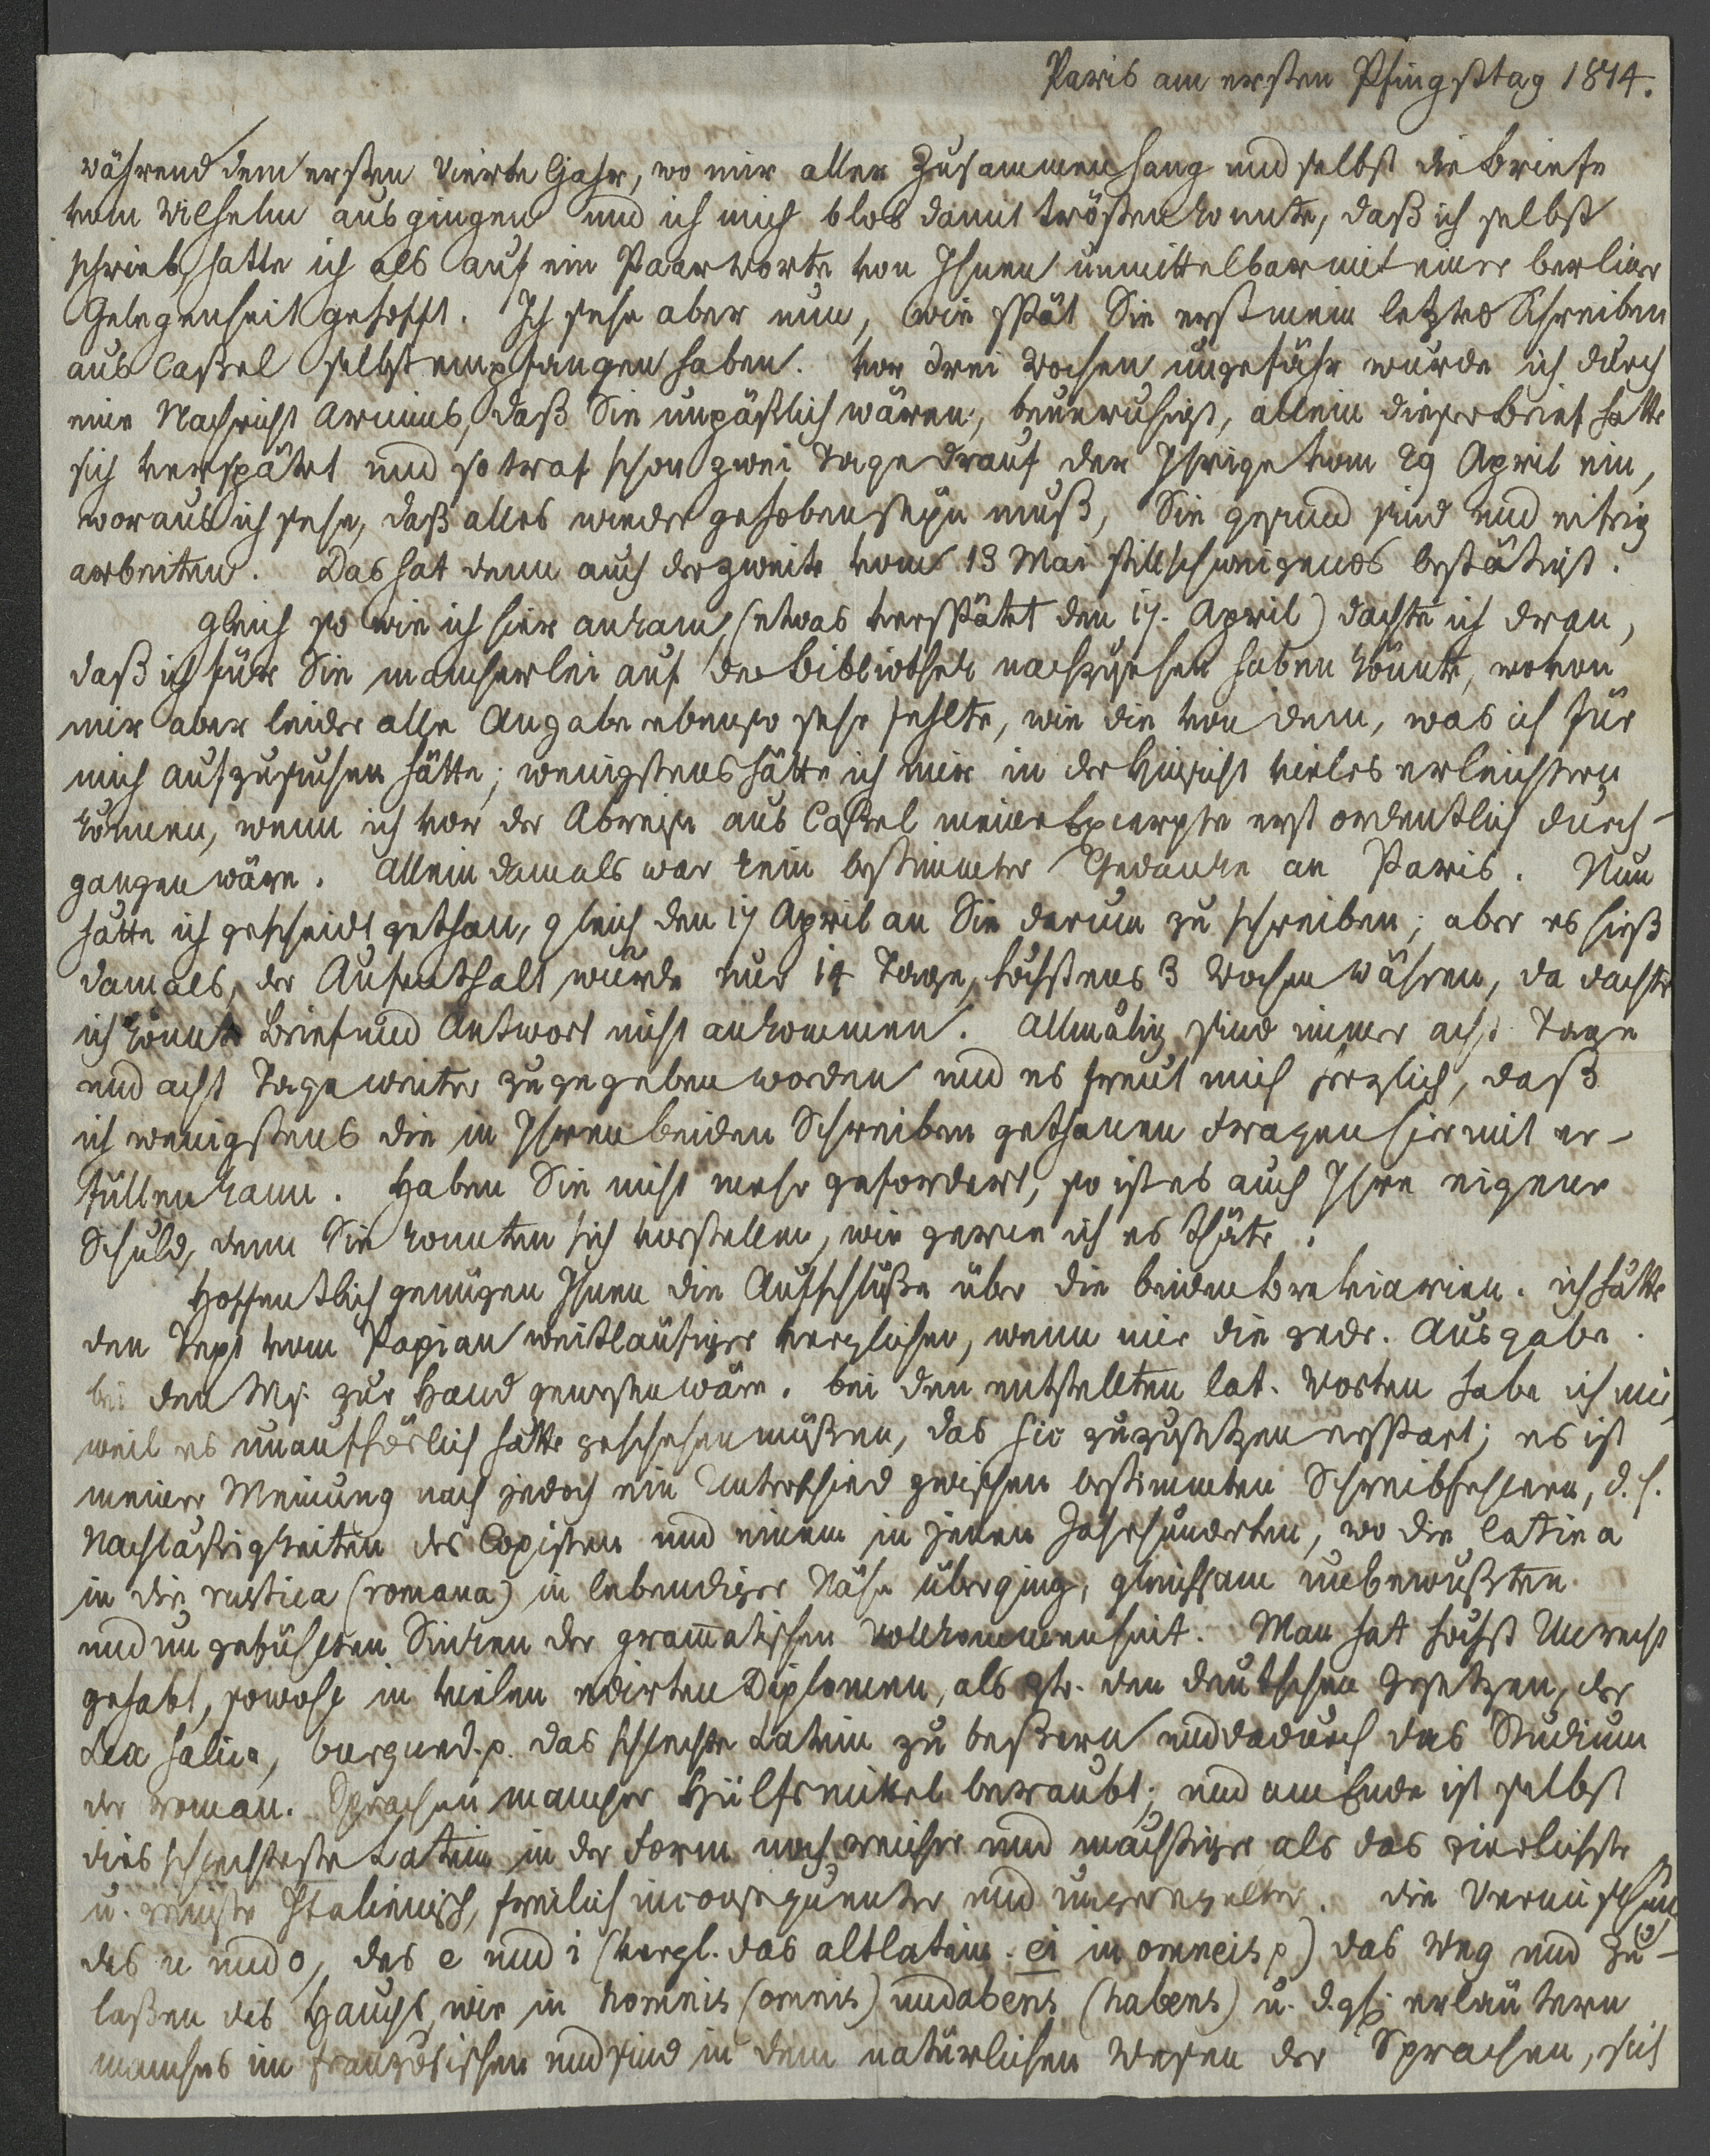 Paris am ersten Pfingsttag 1814.
während dem ersten Vierteljahr, wo mir aller Zusammenhang und selbst die Briefe
vom Wilhelm ausgingen und ich mich blos damit trösten konnte, daß ich selbst
schrieb, hatte ich als auf ein Paar Worte von Ihnen unmittelbar mit einer berliner
Gelegenheit gehofft. Ich sehe aber nun, wie spät Sie erst mein letztes Schreiben
aus Caßel selbst empfangen haben. Vor drei Wochen ungefähr wurde ich durch
eine Nachricht Arnims, daß Sie unpäßlich wären, beunruhigt, allein dieser Brief hatte
sich verspätet und so traf schon zwei Tage drauf der Ihrige vom 29 April ein,
woraus ich sehe, daß alles wieder gehoben seyn muß, Sie gesund sind und eifrig
arbeiten. Das hat denn auch der zweite vom 13 Mai stillschweigends bestätigt.
Gleich so wie ich hier ankam, (etwas verspätet den 17. April) dachte ich dran,
daß ich für Sie mancherlei auf der Bibliothek nachzusehen haben könnte, wovon
mir aber leider alle Angabe ebenso sehr fehlte, wie die von dem, was ich für
mich aufzusuchen hätte; wenigstens hätte ich mir in der Hinsicht vieles erleichtern
können, wenn ich vor der Abreise aus Caßel meine Excerpte erst ordentlich durch-
gangen wäre. Allein damals war kein bestimmter Gedanke an Paris. Nun
hätte ich gescheidt gethan, gleich den 17 April an Sie darum zu schreiben; aber es hieß
damals, der Aufenthalt würde nur 14 Tage, höchstens 3 Wochen währen, da dachte
ich könnte Brief und Antwort nicht ankommen. Allmälig sind immer acht Tage
und acht Tage weiter zugegeben worden und es freut mich herzlich, daß
ich wenigstens die in Ihren beiden Schreiben gethanen Fragen hiermit er-
füllen kann. Haben Sie nicht mehr gefordert, so ist es auch Ihre eigene
Schuld, denn Sie konnten sich vorstellen, wie gerne ich es thäte.
Hoffentlich genügen Ihnen die Aufschlüße über die beiden Breviarien. ich hätte
den Text vom Papian weitläufiger verglichen, wenn mir die gedr. Ausgabe
bei den Ms. zur Hand gewesen wäre. bei den entstellten lat. Worten habe ich mir,
weil es unaufhörlich hätte geschehen müßen, das sic zuzusetzen erspart; es ist
meiner Meinung nach jedoch ein Unterschied zwischen bestimmten Schreibfehlern, d. h.
Nachläßigkeiten des Copisten und einem in jenen Jahrhunderten, wo die latina
in die rustica (romana) in lebendiger Nähe überging, gleichsam unbewußten
und ungefühlten Sinken der gram̄atischen Vollkommenheit. Man hat höchst Unrecht
gehabt, sowohl in vielen edirten Diplomen, als in den deutschen Gesetzen, der
Lex salica, burgund. p. das schlechte Latein zu beßern und dadurch das Studium
der roman. Sprachen mancher Hülfsmittel beraubt; und am Ende ist selbst
dies schlechteste Latein in der Form noch reicher und mächtiger als das zierlichste
u. reinste Italienisch, freilich inconsequenter und ungeregelter. die Vermischung
des u und o, des e und i (vergl. das altlatein. ei in omneis p) das Weg und Zu-
laßen des Hauchs, wie in homnis (omnis) und abens (habens) u. dgl. erläutern
manches im französischen und sind in dem natürlichen Wesen der Sprachen, sich